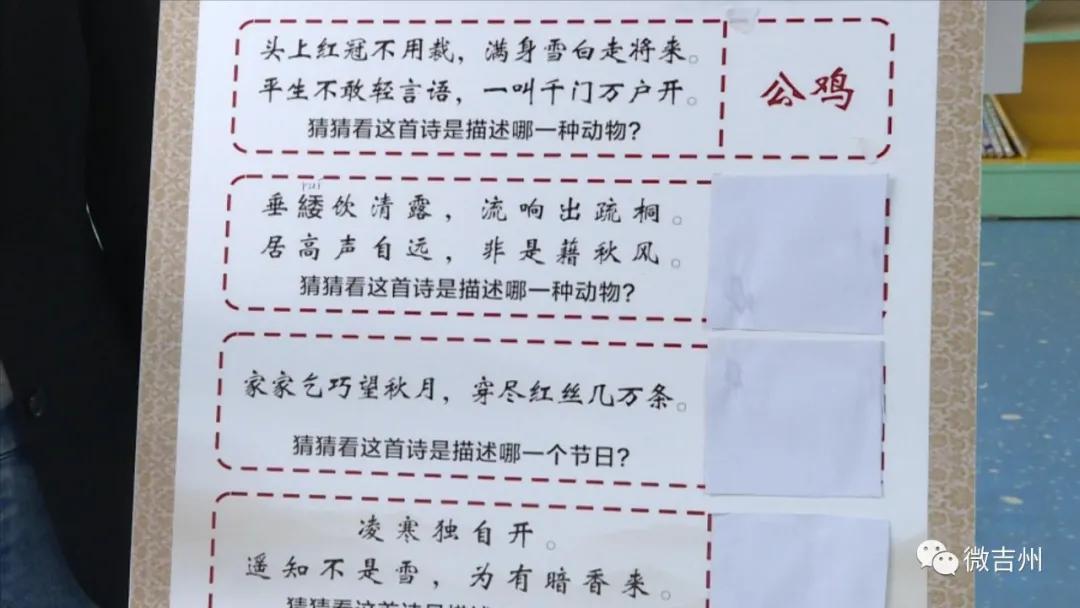 头上红冠不用裁，满身雪白走将来。
平生不敢轻言语，一叫千门万户开。
猜猜看这首诗是描述哪一种动物？
公鸡
垂緌饮清露，流响出疏桐。
居高声自远，非是藉秋风。
猜猜看这首诗是描述哪一种动物？
家家乞巧望秋月，穿尽红丝几万条。
猜猜看这首诗是描述哪一个节日？
凌寒独自开。
遥知不是雪，为有暗香来。
猜猜看这首诗是描述哪一
微吉州